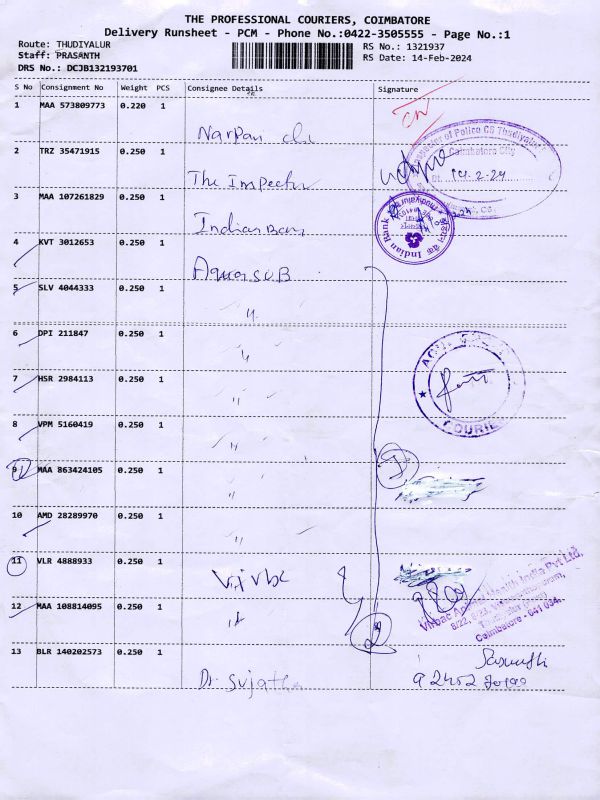 THE PROFESSIONAL COURIERS, COIMBATORE
Delivery Runsheet - PCM - Phone No.:0422-3505555 - Page No.:1
Route: THUDIYALUR
Staff: PRASANTH
DRS No.: DCJB132193701
RS No.: 1321937
RS Date: 14-Feb-2024
S No Consignment No Weight PCS Consignee Details Signature
1 MAA 573809773 0.220 1
Narpan
2 TRZ 35471915 0.250 1 The Inspector
3 MAA 107261829 0.250 1 Indian Bank
4 KVT 3012653 0.250 1 AquasuB
5 SLV 4044333 0.250 1 "
6 DPI 211847 0.250 1 "
7 HSR 2984113 0.250 1 "
8 VPM 5160419 0.250 1 "
9 MAA 863424105 0.250 1 "
10 AMD 28289970 0.250 1 "
11 VLR 4888933 0.250 1 Virbac
12 MAA 108814095 0.250 1 "
13 BLR 140202573 0.250 1 Dr. Sujatha
of Police C5 Thudiyalur
Coimbatore City
Dt. 14.2.24
Indian Bank
7
2
Virbac Animal Health India Pvt Ltd,
Coimbatore - 641 034.